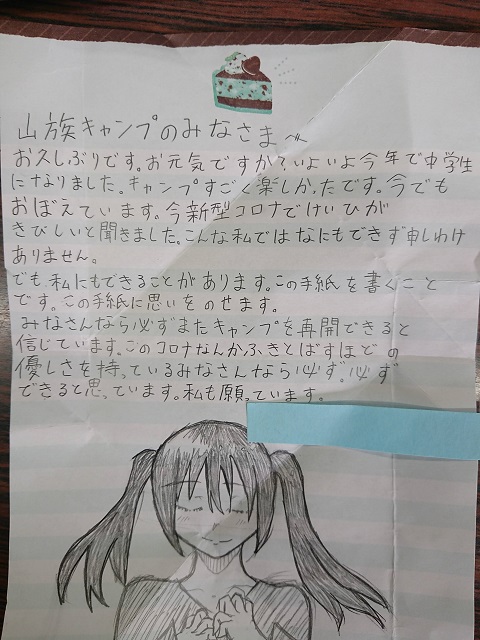 山族キャンプのみなさま〜
お久しぶりです。お元気ですか?いよいよ今年で中学生
になりました。キャンプすごく楽しかったです。今でも
おぼえています。今新型コロナでけいひが
きびしいと聞きました。こんな私ではなにもできず申しわけ
ありません。
でも、私にもできることがあります。この手紙を書くこと
です。この手紙に思いをのせます。
みなさんなら必ずまたキャンプを再開できると
信じています。このコロナなんかふきとばすほどの
優しさを持っているみなさんなら必ず。必ず
できると思っています。私も願っています。